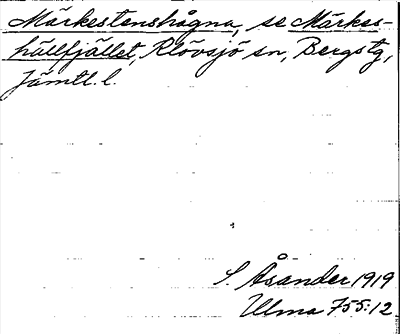 Märkestenshågna, se Märkes-
hällfjället, Klövsjö sn, Bergs tg,
Jämtl. l.
S. Åsander 1919
Ulma 755:12